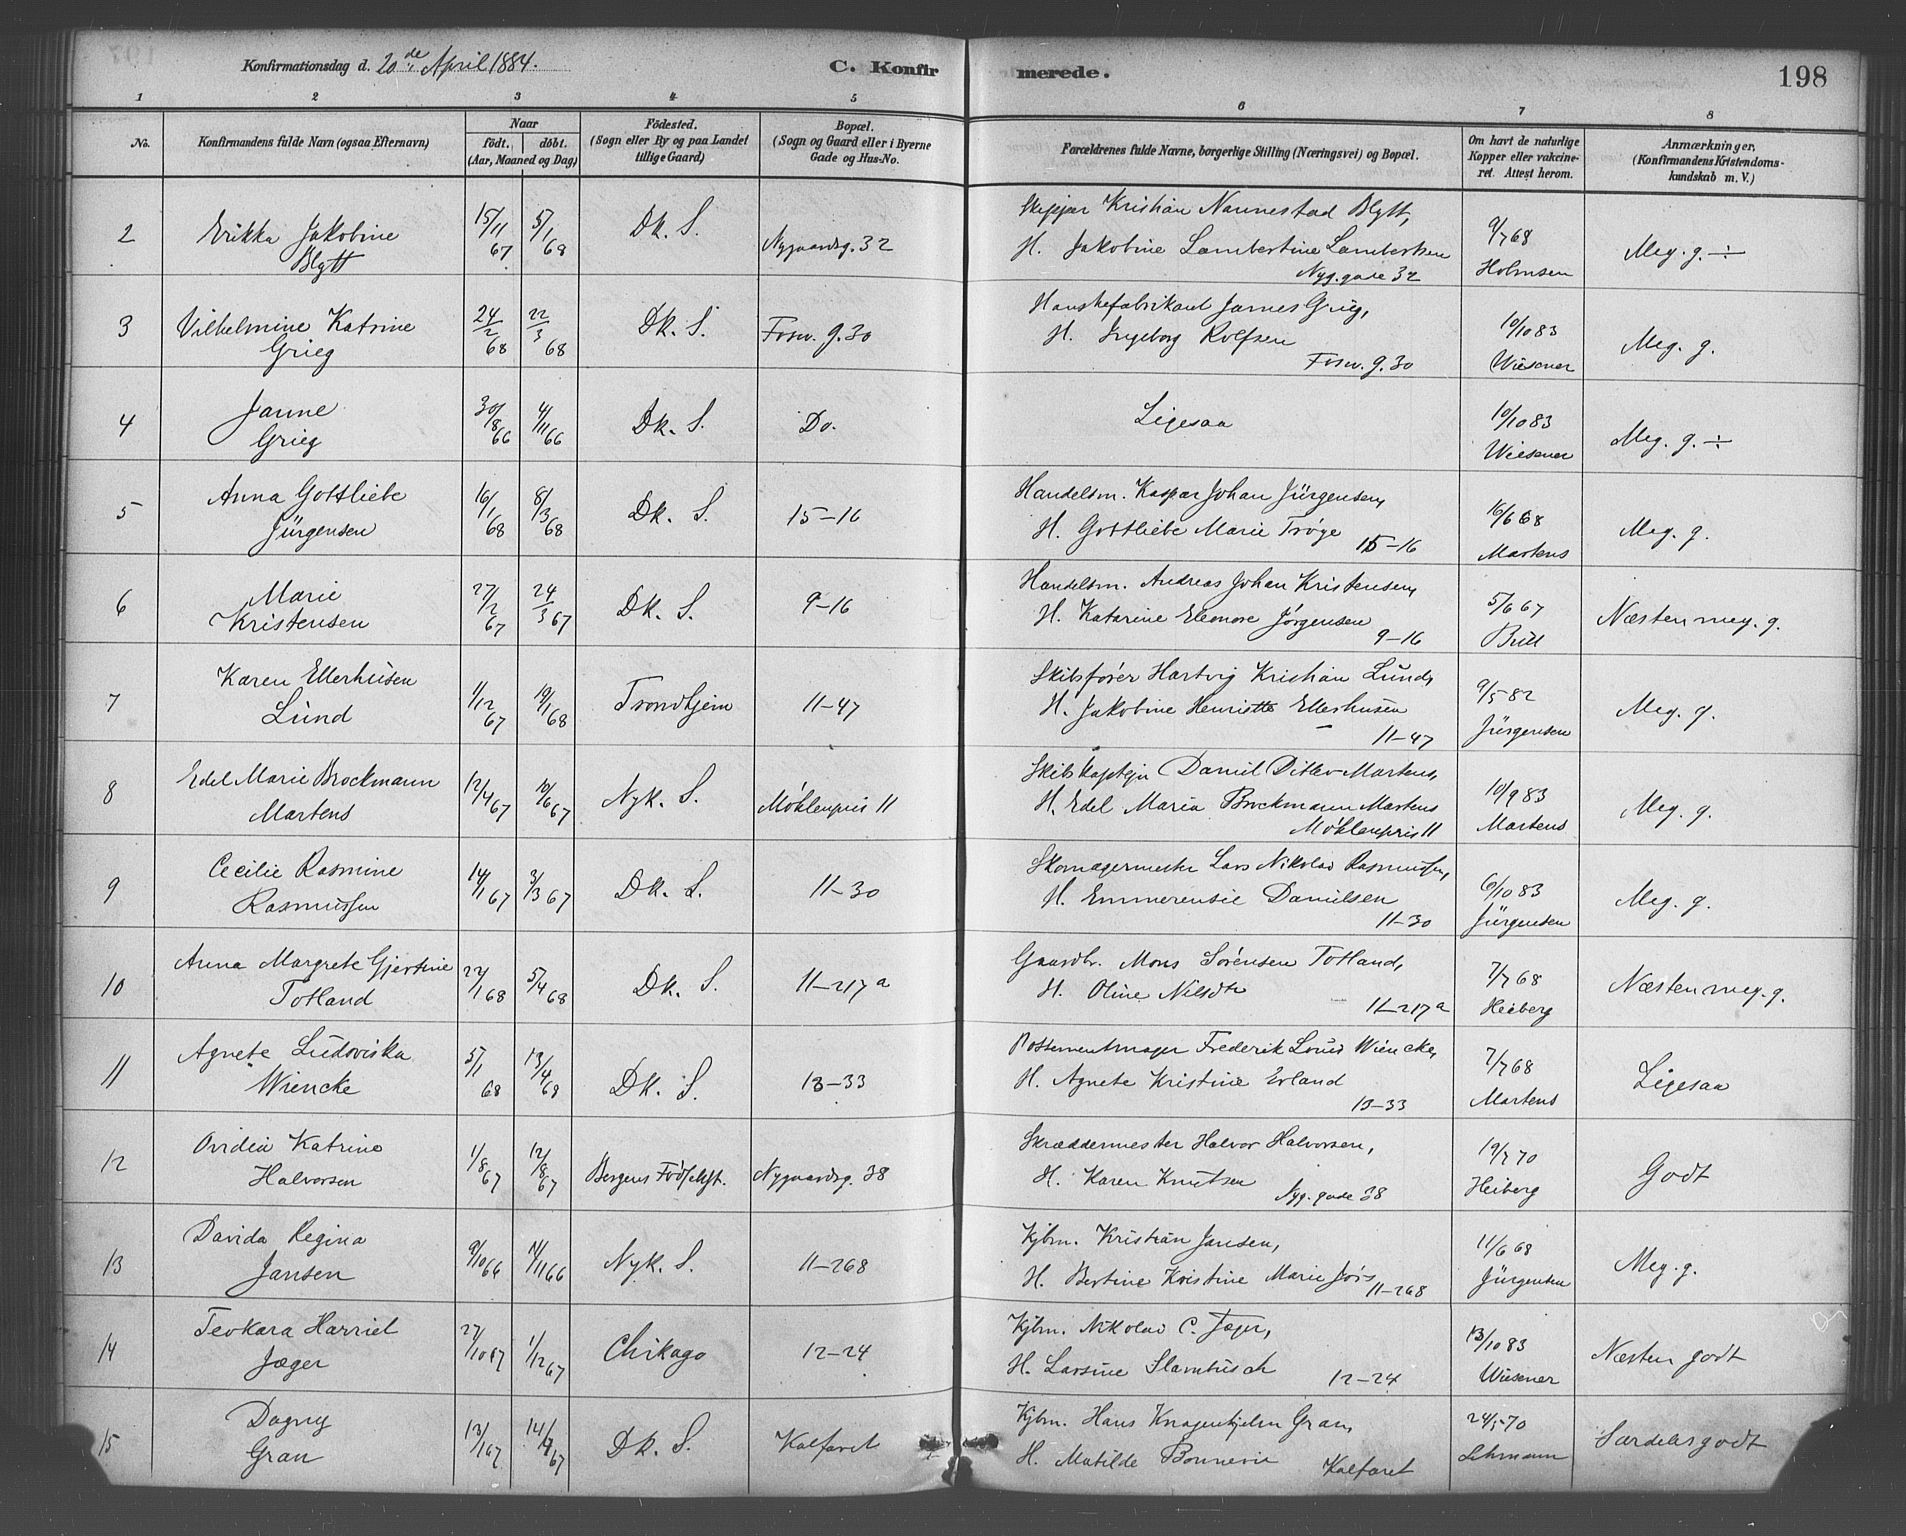 Konfirmationsdag d. 20de April 1884.
C. Konfirmerede.
198
1 2 3 4 5 6 7 8
No.
Konfirmandens fulde Navn (ogsaa Efternavn)
Naar
födt. döbt.
(Aar, Maaned og Dag)
Födested.
(Sogn eller By og paa Landet
tillige Gaard)
Bopæl.
(Sogn og Gaard eller i Byerne
Gade og Hus-No.
Forældrenes fulde Navne, borgerlige Stilling (Næringsvei) og Bopæl.
Om havt de naturlige
Kopper eller vakcine-
ret. Attest herom.
Anmærkninger,
(Konfirmandens Kristendoms-
kundskab m. V.)
2 Erikka Jakobine
Blytt
15/11 67 5/1 68 Dk. S. Nygaardsg. 32
Skipper Kristian Nannestad Blytt,
H. Jakobine Lambertine Lambertsen
Nyg.gade 32
9/7 68
Holmsen
Meg. g. ÷
3 Vilhelmine Katrine
Grieg
24/2 68 22/3 68 Dk. S. Fosw. g. 30
Hanskefabrikant James Grieg,
H. Ingeborg Rolfsen
Fosw. g. 30
10/10 83
Wiesener
Meg. g.
4 Janne
Grieg
30/8 66 4/11 66 Dk. S. Do.
Ligesaa
10/10 83
Wiesener
Meg. g. ÷
5 Anna Gottliebe
Jürgensen
16/1 68 8/3 68 Dk. S. 15-16
Handelsm. Kaspar Johan Jürgensen,
H. Gottliebe Marie Trøge
15-16
16/6 68
Martens
Meg. g.
6 Marie
Kristensen
27/2 67 24/3 67 Dk. S. 9-16
Handelsm. Andreas Johan Kristensen,
H. Katarine Eleonore Jørgensen
9-16
5/6 67
Næsten meg. g.
7 Karen Ellerhusen
Lund
1/12 67 19/1 68 Trondhjem 11-47
Skibsfører Hartvig Kristian Lund,
H. Jakobine Henriette Ellerhusen
11-47
9/5 82
Jürgensen
Meg. g.
8 Edel Marie Brockmann
Martens
12/4 67 10/6 67 Nyk. S. Møhlenpris 11
Skibskaptejn Daniel Ditlev Martens,
H. Edel Maria Brockmann Martens
Møhlenpris 11
10/9 83
Martens
Meg. g.
9 Cecilie Rasmine
Rasmussen
14/1 67 3/3 67 Dk. S. 11-30
Skomagermester Lars Nikolai Rasmussen,
H. Emmerensie Danielsen
11-30
6/10 83
Jürgensen
Meg. g.
10 Anna Margrete Gjertine
Totland
22/1 68 5/4 68 Dk. S. 11-217a
Gaardbr. Mons Sørensen Totland,
H. Oline Nilsdtr
11-217a
7/7 68
Heiberg
Næsten meg. g.
11 Agnete Ludoviska
Wiencke
5/1 68 13/4 68 Dk. S. 13-33
Postementmager Frederik Louis Wiencke,
H. Agnete Kristine Evland
13-33
7/7 68
Martens
Ligesaa
12 Ovidia Katrine
Halvorsen
1/8 67 12/8 67 Bergens Fødselsst. Nygaardsg. 38
Skræddermester Halvor Halvorsen,
H. Karen Knutsen
Nyg. gade 38
19/7 70
Heiberg
Godt
13 Davida Regina
Jansen
9/10 66 4/11 66 Nyk. S. 11-268
Kjbm. Kristian Jansen,
H. Bertine Kristine Marie
11-268
11/6 68
Jürgensen
Meg. g.
14 Teokara Harriet
Jæger
27/10 67 1/12 67 Chikago 12-24
Kjbm. Nikolai C. Jæger,
H. Larsine Stambusch
12-24
13/10 83
Wiesener
Næsten godt
15 Dagny
Gran
13/1 67 14/4 67 Dk. S. Kalfaret
Kjbm. Hans Knagenhjelm Gran,
H. Matilde Bonnevie
Kalfaret
24/5 70
Lehmann
Særdeles godt